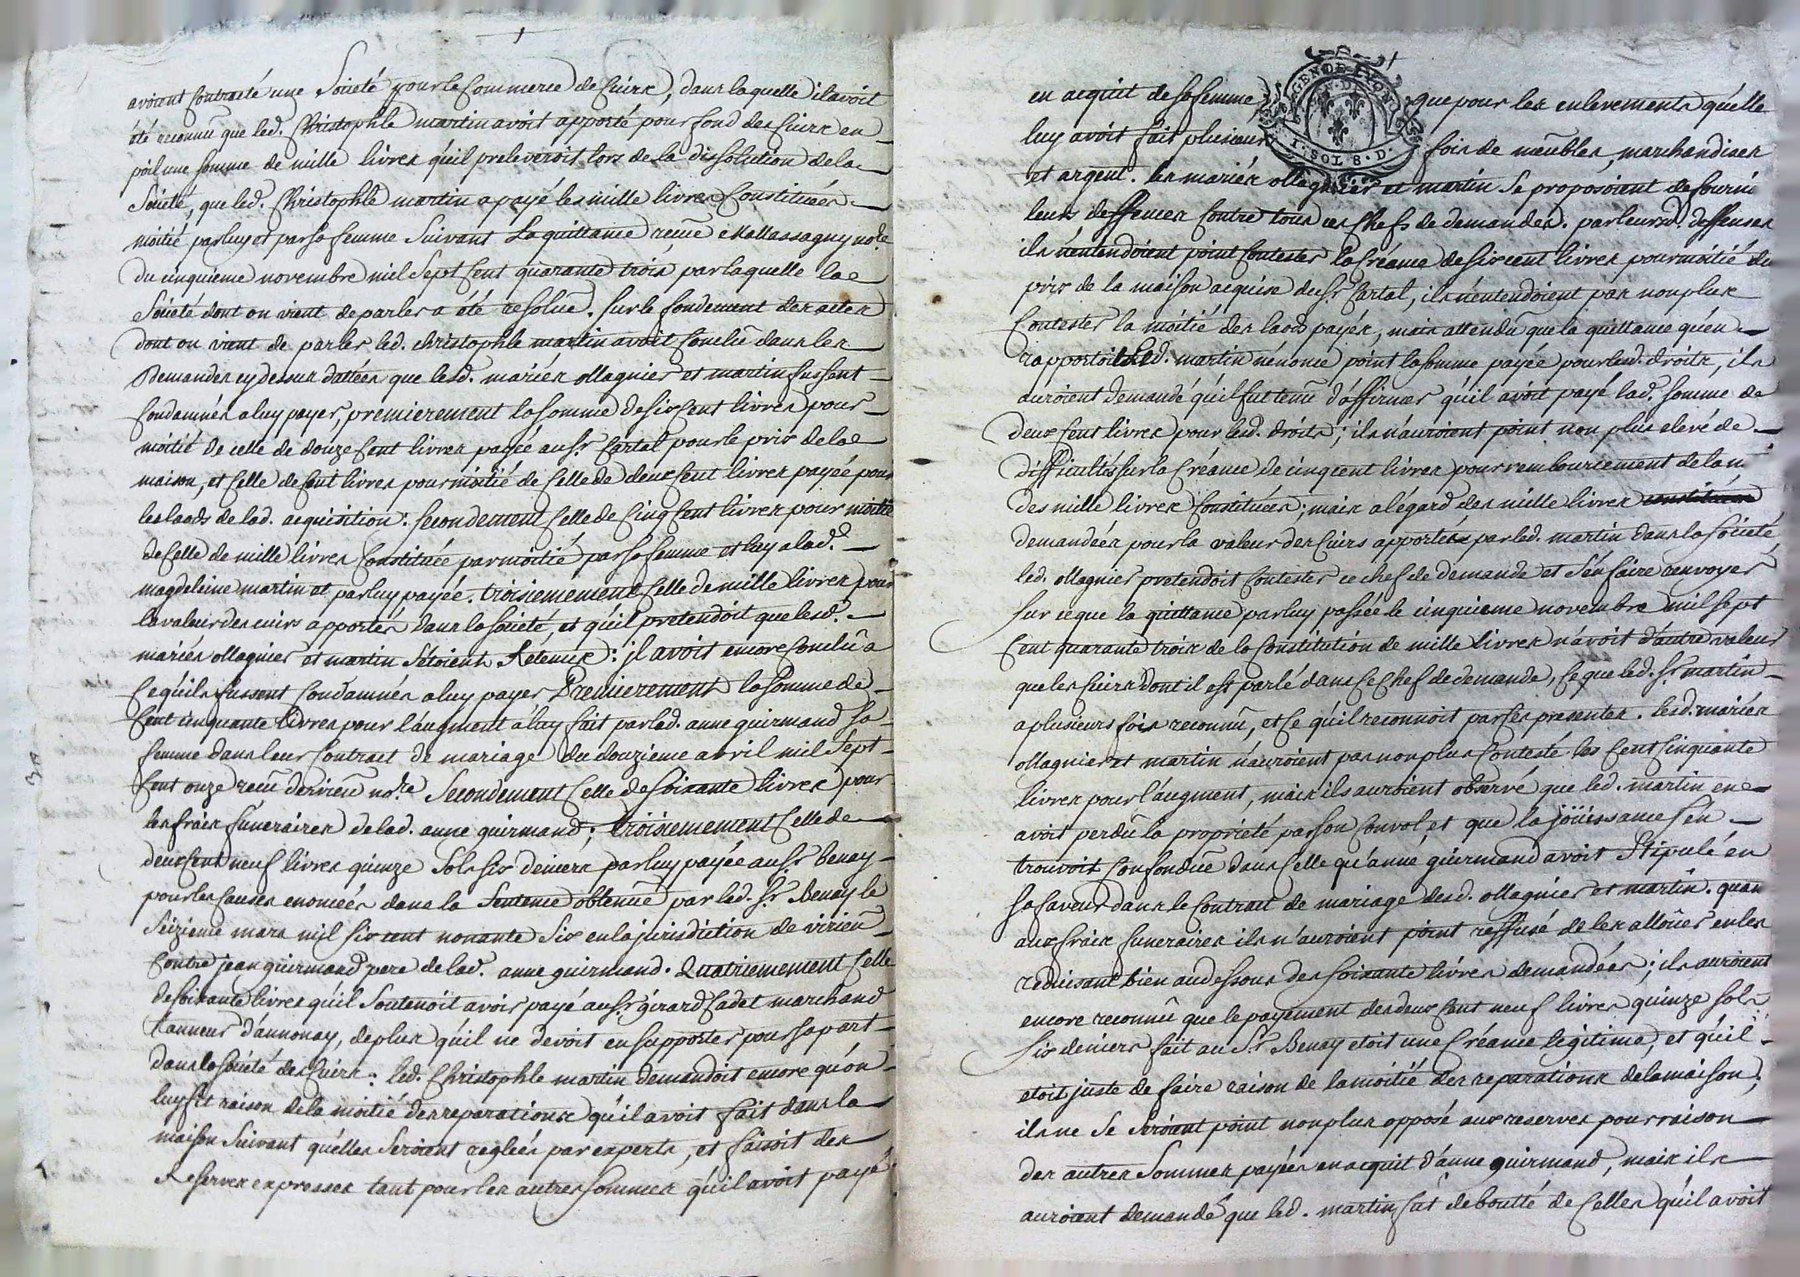 avoient Contracté une Societé pour le Commerce de Cuirs, dans laquelle il avoit
été reconnu que led. Christophle martin avoit apporté pour fond des Cuirs en
poil une somme de mille livres qu'il preleveroit lors de la dissolution de la
Societé, que led. Christophle martin a payé les mille livres Constituées
moitié par luy et par sa femme Suivant La quittance recüe no.re
du cinquieme novembre mil Sept Cent quarante trois par laquelle la
Societé dont on vient de parler a été resolüe. Sur le fondement des actes
dont on vient de parler led. christophle martin avoit Conclu dans les
Demandes cy dessus dattées que lesd. mariés ollagnier et martin fussent
Condamnés a luy payer, premierement la somme de Six Cent livres pour
moitié de celle de douze Cent livres payée au Sr. Cartal pour le prix de la
maison, et Celle de Cent livres pour moitié de Celle de deux Cent livres payée pour
les laods de lad. acquisition: Secondement Celle de Cinq Cent livres pour moitié
de Celle de mille livres Constituée par moitié par Sa femme et luy a lad.
magdeleine martin et par luy payée. troisiemement Celle de mille livres pour
la valeur des cuirs apportés dans la Societé, et qu'il pretendoit que lesd.
mariés ollagnier et martin S'étoient Retenus: il avoit encore Conclu a
Ce qu'ils fussent Condamnés a luy payer Premierement la Somme de
Cent cinquante livres pour l'augment a luy fait par lad. anne guirmand sa
femme dans leur Contrat de mariage du douzieme avril mil Sept
Cent onze recu dervieu no.re Secondement Celle de Soixante livres pour
les fraix funeraires de lad. anne guirmand; troisiemement Celle de
deux Cent neuf livres quinze Sols six deniers par luy payée au Sr. benay
pour les Causes enoncées dans la Sentence obtenüe par led. Sr. Benay le
Seizieme mars mil six cent nonante Six en la jurisdiction de virieu
Contre jean guirmand pere de lad. anne guirmand. Quatriemement Celle
de Soixante livres qu'il Soutenoit avoir payé au Sr. girard Cadet marchand
tanneur d'annonay, de plus qu'il ne devoit en supporter pour sa part
dans la Societé de Cuirs: led. Christophle martin demandoit encore qu'on
luy fit raison de la moitié des reparations qu'il avoit fait dans la
maison Suivant qu'elles Seroient reglées par experts, et faisoit des
Reserves expresses tant pour les autres sommes qu'il avoit payé
en acquit de sa femme que pour les enlevements qu'elle
luy avoit fait plusieurs fois de meubles, marchandises
et argent. les mariés ollagnier et martin Se proposoient de fournir
leurs deffences Contre tous ces Chefs de demandes. par leursd. deffenses
ils n'entendoient point Contester la Créance de Six cent livres pour moitié du
prix de la maison acquise du Sr. Cartal, ils n'entendoient pas non plus
Contester la moitié des laods payés, mais attendu que la quittance qu'en
rapportoit led. martin n'enonce point la somme payée pour lesd. droits, ils
auroient demandé qu'il fut tenu d'affirmer qu'il avoit payé lad. somme de
deux Cent livres pour lesd. droits; ils n'auroient point non plus elevé de
difficultés sur la Créance de cinq cent livres pour remboursement de la
des mille livres Constituées; mais a l'égard des mille livres
demandées pour la valeur des Cuirs apportés par led. martin dans la Societé
led. ollagnier pretendoit Contester ce chef de demande et S'en faire renvoyer
sur ce que la quittance par luy passée le cinquieme novembre mil sept
Cent quarante trois de la Constitution de mille livres n'avoit d'autre valeur
que les Cuirs dont il est parlé dans Ce Chef de demande, Ce que led. Sr. martin
a plusieurs fois reconnu, et Ce qu'il reconnoit par Ses presentes. lesd. mariés
ollagnier et martin n'auroient pas non plus Contesté les Cent Cinquante
livres pour l'augment, mais ils auroient observé que led. martin en
avoit perdu la propriété par son Convol et que la joüissance S'en
trouvoit Confondüe dans Celle qu'anne guirmand avoit Stipulé en
sa faveur dans le Contrat de mariage desd. ollagnier et martin. quan
aux fraix funeraires ils n'auroient point reffusé de les alloüer en les
reduisant bien au dessous des Soixante livres demandées; ils auroient
encore reconnu que le payement des deux Cent neuf livres quinze sols
Six deniers fait au Sr. Benay etoit une Créance legitime, et qu'il
etoit juste de faire raison de la moitié des reparations de la maison;
ils ne Se Seroient point non plus opposé aux reserves pour raison
des autres Sommes payées en acquit d'anne guirmand, mais ils
auroient demandé que led. martin fut deboutté de Celles qu'il avoit
GEN DE LYON
1 · SOL 8 · D ·